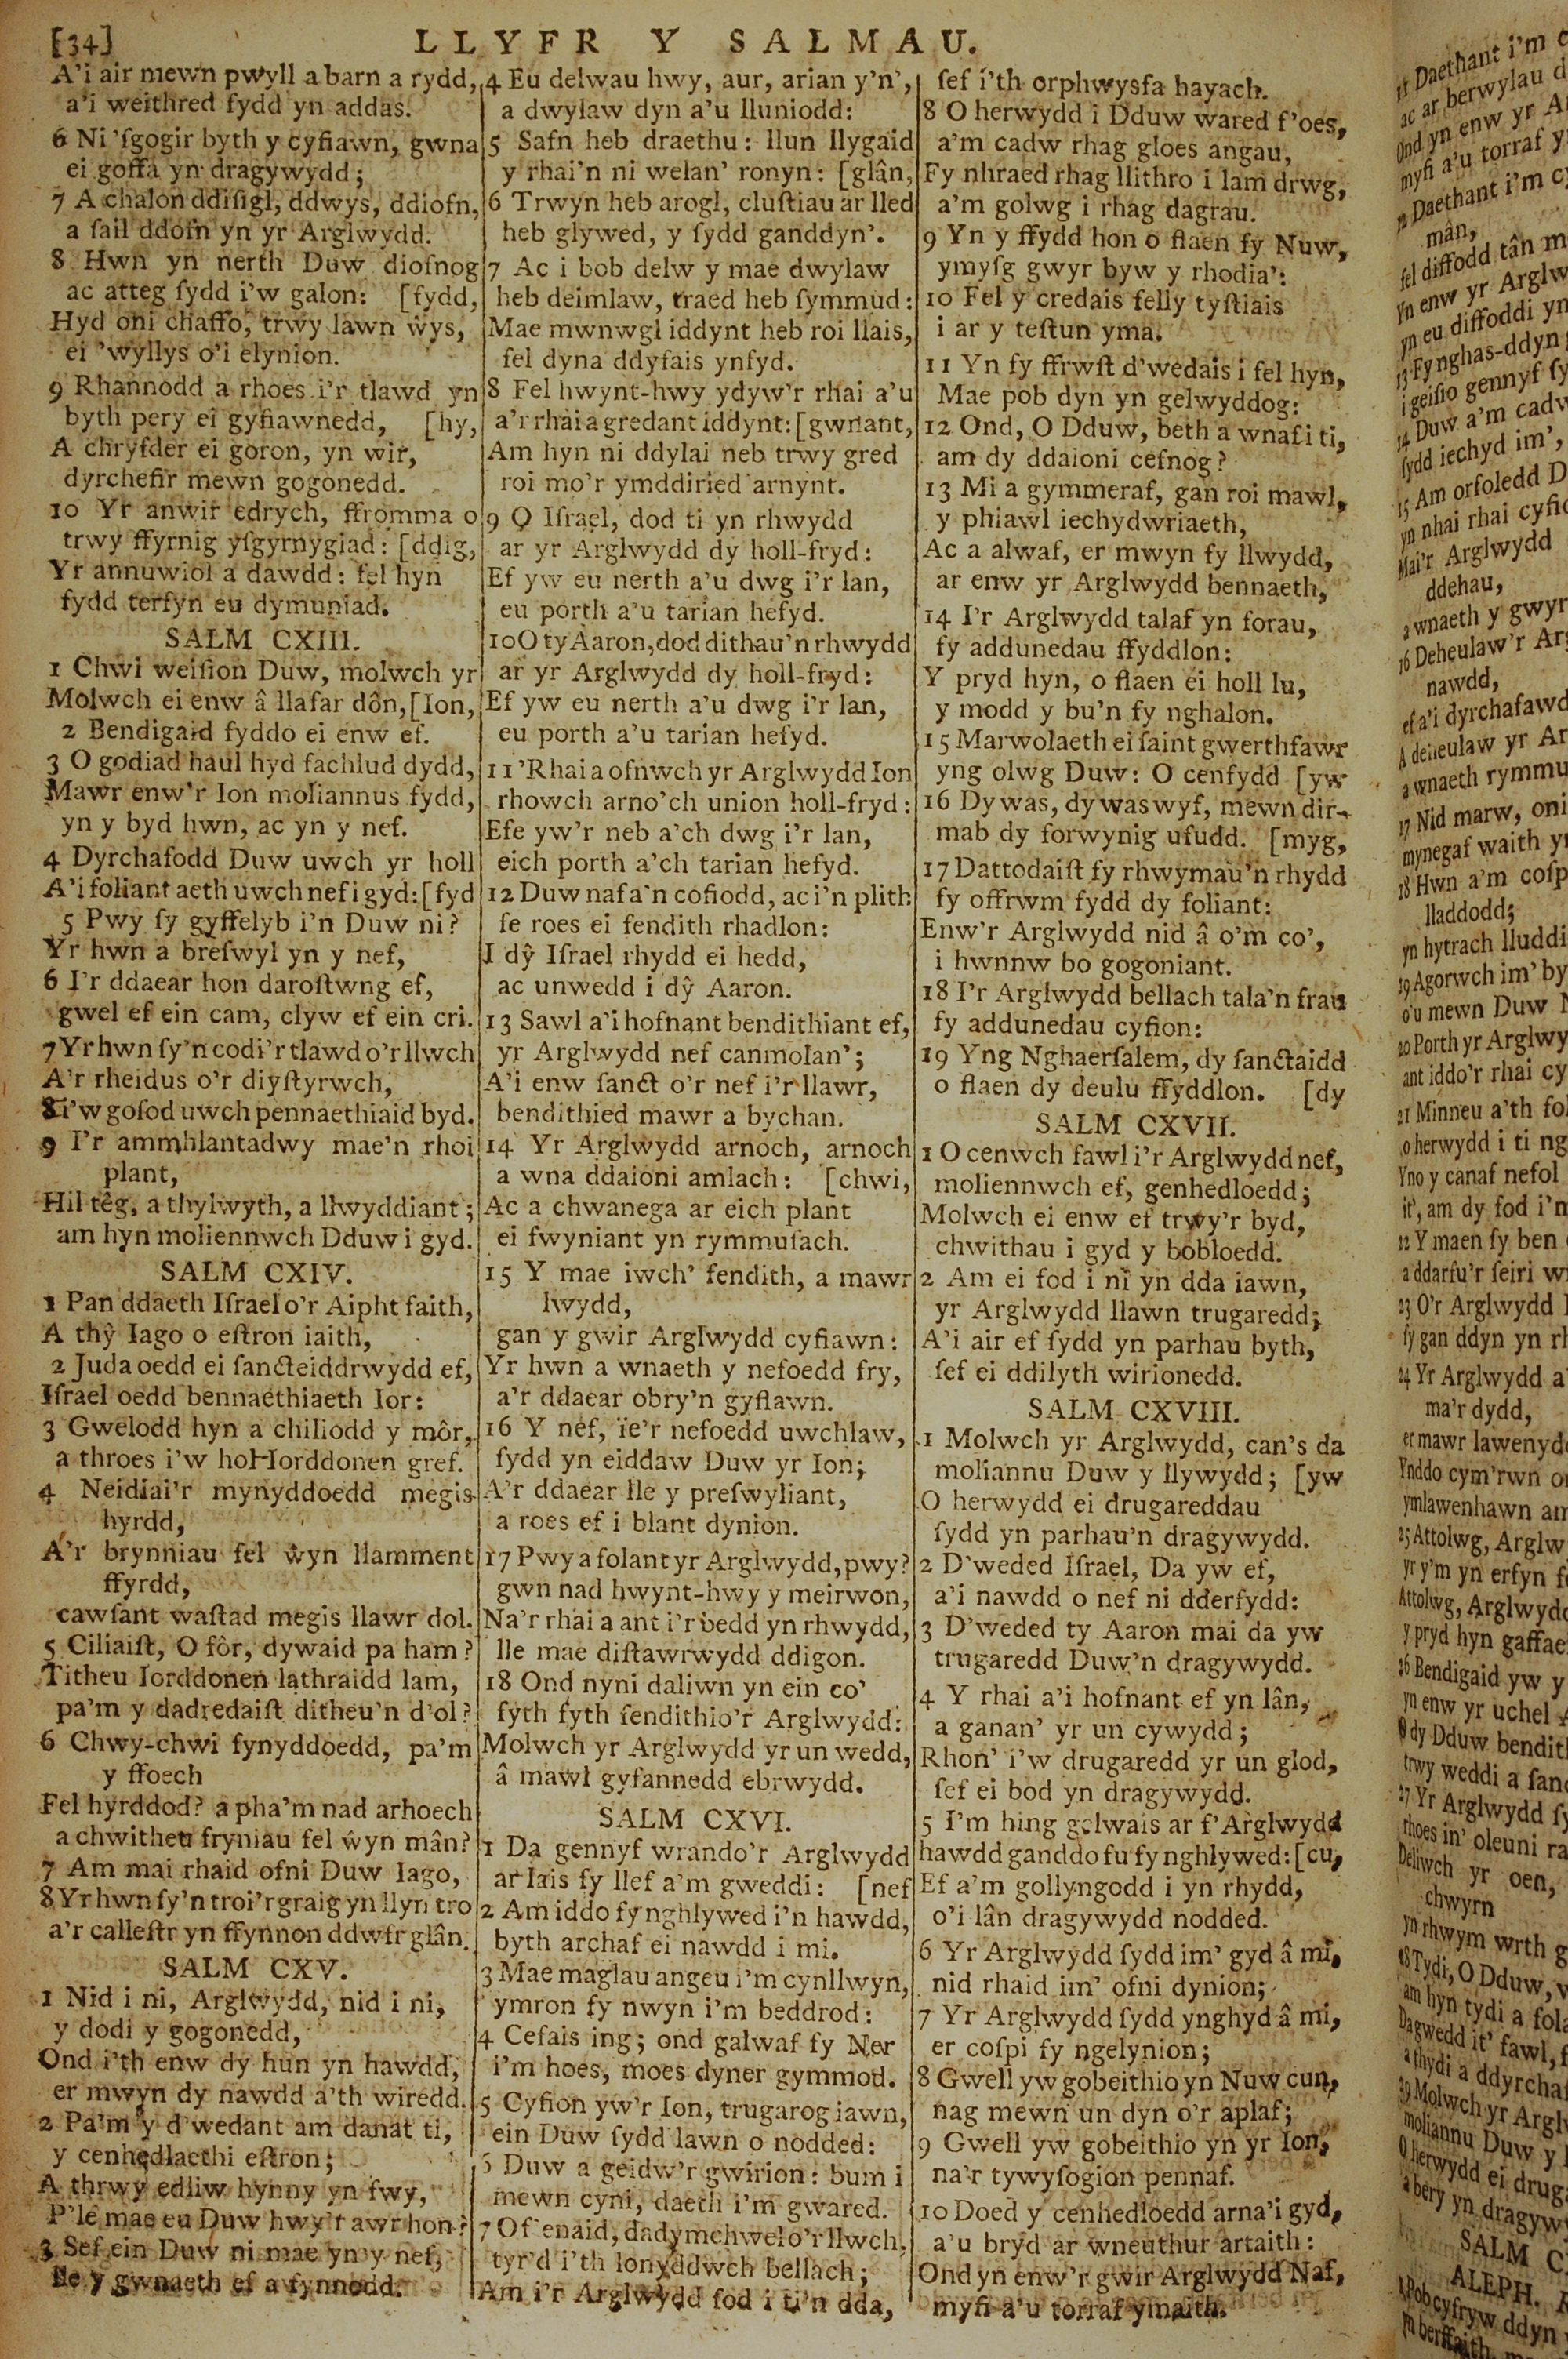 [34] LLYFR Y SALMAU.
A'i air mewn pwyll a barn a rydd,
a'i weithred ſydd yn addas.
6 Ni 'ſgogir byth y cyfiawn, gwna
ei goffa yn dragywydd;
7 A chalon ddiſigl, ddwys, ddiofn,
a ſail ddofn yn yr Arglwydd.
8 Hwn yn nerth Duw diofnog
ac atteg ſydd i'w galon: [fydd,
Hyd oni chaffo, trwy lawn ŵys,
ei 'wyllys o'i elynion.
9 Rhannodd a rhoes i'r tlawd yn
byth pery ei gyfiawnedd, [hy,
A chryfder ei goron, yn wir,
dyrchefir mewn gogonedd.
10 Yr anwir edrych, ffromma o
trwy ffyrnig yſgyrnygiad: [ddig,
Yr annuwiol a dawdd: fel hyn
fydd terfyn eu dymuniad.
SALM CXIII.
1 Chwi weiſion Duw, molwch yr
Molwch ei enw â llafar dôn, [Ion,
2 Bendigaid fyddo ei enw ef.
3 O godiad haul hyd fachlud dydd,
Mawr enw'r Ion moliannus fydd,
yn y byd hwn, ac yn y nef.
4 Dyrchafodd Duw uwch yr holl
A'i foliant aeth uwch nef i gyd: [fyd
5 Pwy ſy gyffelyb i'n Duw ni?
Yr hwn a breſwyl yn y nef,
6 I'r ddaear hon daroſtwng ef,
gwel ef ein cam, clyw ef ein cri.
7 Yr hwn ſy'n codi'r tlawd o'r llwch
A'r rheidus o'r diyſtyrwch,
8 i'w goſod uwch pennaethiaid byd.
9 I'r ammhlantadwy mae'n rhoi
plant,
Hil têg, a thylwyth, a llwyddiant;
am hyn moliennwch Dduw i gyd.
SALM CXIV.
1 Pan ddaeth Iſrael o'r Aipht faith,
A thŷ Iago o eſtron iaith,
2 Juda oedd ei ſancteiddrwydd ef,
Iſrael oedd bennaethiaeth Ior:
3 Gwelodd hyn a chiliodd y môr,
a throes i'w hol Iorddonen gref.
4 Neidiai'r mynyddoedd megis
hyrdd,
A'r brynniau fel ŵyn llamment
ffyrdd,
cawſant waſtad megis llawr dol.
5 Ciliaiſt, O fôr, dywaid pa ham?
Titheu Iorddonen lathraidd lam,
pa'm y dadredaiſt ditheu'n d'ol?
6 Chwy-chwi fynyddoedd, pa'm
y ffoech
Fel hyrddod? a pha'm nad arhoech
a chwitheu fryniau fel ŵyn mân?
7 Am mai rhaid ofni Duw Iago,
8 Yr hwn ſy'n troi'r graig yn llyn tro
a'r calleſtr yn ffynnon ddwfr glân.
SALM CXV.
1 Nid i ni, Arglwydd, nid i ni,
y dodi y gogonedd,
Ond i'th enw dy hun yn hawdd,
er mwyn dy nawdd a'th wiredd.
2 Pa'm y d'wedant am danat ti,
y cenhedlaethi eſtron;
A thrwy edliw hynny yn fwy,
P'le mae eu Duw hwy'r awr hon?
3 Sef ein Duw ni mae yn y nef,
lle y gwnaeth ef a fynnodd.
4 Eu delwau hwy, aur, arian y'n',
a dwylaw dyn a'u lluniodd:
5 Safn heb draethu: llun llygaid
y rhai'n ni welan' ronyn: [glân,
6 Trwyn heb arogl, cluſtiau ar lled
heb glywed, y ſydd ganddyn'.
7 Ac i bob delw y mae dwylaw
heb deimlaw, traed heb ſymmud:
Mae mwnwgl iddynt heb roi llais,
fel dyna ddyfais ynfyd.
8 Fel hwynt-hwy ydyw'r rhai a'u
a'r rhai a gredant iddynt: [gwnant,
Am hyn ni ddylai neb trwy gred
roi mo'r ymddiried arnynt.
9 O Iſrael, dod ti yn rhwydd
ar yr Arglwydd dy holl-fryd:
Ef yw eu nerth a'u dwg i'r lan,
eu porth a'u tarian hefyd.
10 O ty Aaron, dod dithau'n rhwydd
ar yr Arglwydd dy holl-fryd:
Ef yw eu nerth a'u dwg i'r lan,
eu porth a'u tarian hefyd.
11 'Rhai a ofnwch yr Arglwydd Ion
rhowch arno'ch union holl-fryd:
Efe yw'r neb a'ch dwg i'r lan,
eich porth a'ch tarian hefyd.
12 Duw naf a'n cofiodd, ac i'n plith
fe roes ei fendith rhadlon:
I dŷ Iſrael rhydd ei hedd,
ac unwedd i dŷ Aaron.
13 Sawl a'i hofnant bendithiant ef,
yr Arglwydd nef canmolan';
A'i enw ſanct o'r nef i'r llawr,
bendithied mawr a bychan.
14 Yr Arglwydd arnoch, arnoch
a wna ddaioni amlach: [chwi,
Ac a chwanega ar eich plant
ei fwyniant yn rymmuſach.
15 Y mae iwch' fendith, a mawr
lwydd,
gan y gwir Arglwydd cyfiawn:
Yr hwn a wnaeth y nefoedd fry,
a'r ddaear obry'n gyflawn.
16 Y nef, ïe'r nefoedd uwchlaw,
ſydd yn eiddaw Duw yr Ion;
A'r ddaear lle y preſwyliant,
a roes ef i blant dynion.
17 Pwy a folant yr Arglwydd, pwy?
gwn nad hwynt-hwy y meirwon,
Na'r rhai a ant i'r bedd yn rhwydd,
lle mae diſtawrwydd ddigon.
18 Ond nyni daliwn yn ein co'
fyth fyth fendithio'r Arglwydd:
Molwch yr Arglwydd yr un wedd,
â mawl gyfannedd ebrwydd.
SALM CXVI.
1 Da gennyf wrando'r Arglwydd
ar lais fy llef a'm gweddi: [nef
2 Am iddo fy nghlywed i'n hawdd,
byth archaf ei nawdd i mi.
3 Mae maglau angeu i'm cynllwyn,
ymron fy nwyn i'm beddrod:
4 Cefais ing; ond galwaf fy Ner
i'm hoes, moes dyner gymmod.
5 Cyfion yw'r Ion, trugarog iawn,
ein Duw ſydd lawn o nodded:
6 Duw a geidw'r gwirion: bum i
mewn cyni, daeth i'm gwared.
7 O f'enaid, dadymchwel o'r llwch,
tyr'd i'th lonyddwch bellach;
Am i'r Arglwydd fod i ti'n dda,
ſef i'th orphwysfa hayach.
8 O herwydd i Dduw wared f'oes,
a'm cadw rhag gloes angau,
Fy nhraed rhag llithro i lam drwg,
a'm golwg i rhag dagrau.
9 Yn y ffydd hon o flaen fy Nuw,
ymyſg gwyr byw y rhodia':
10 Fel y credais felly tyſtiais
i ar y teſtun yma.
11 Yn fy ffrwſt d'wedais i fel hyn,
Mae pob dyn yn gelwyddog:
12 Ond, O Dduw, beth a wnaf i ti,
am dy ddaioni cefnog?
13 Mi a gymmeraf, gan roi mawl,
y phiawl iechydwriaeth,
Ac a alwaf, er mwyn fy llwydd,
ar enw yr Arglwydd bennaeth,
14 I'r Arglwydd talaf yn forau,
fy addunedau ffyddlon:
Y pryd hyn, o flaen ei holl lu,
y modd y bu'n fy nghalon.
15 Marwolaeth ei ſaint gwerthfawr
yng olwg Duw: O cenfydd [yw
16 Dy was, dy was wyf, mewn dir-
mab dy forwynig ufudd. [myg,
17 Dattodaiſt fy rhwymau'n rhydd
fy offrwm fydd dy foliant:
Enw'r Arglwydd nid â o'm co',
i hwnnw bo gogoniant.
18 I'r Arglwydd bellach tala'n frau
fy addunedau cyfion:
19 Yng Nghaerſalem, dy ſanctaidd
o flaen dy deulu ffyddlon. [dy
SALM CXVII.
1 O cenwch fawl i'r Arglwydd nef,
moliennwch ef, genhedloedd;
Molwch ei enw ef trwy'r byd,
chwithau i gyd y bobloedd.
2 Am ei fod i ni yn dda iawn,
yr Arglwydd llawn trugaredd;
A'i air ef ſydd yn parhau byth,
ſef ei ddilyth wirionedd.
SALM CXVIII.
1 Molwch yr Arglwydd, can's da
moliannu Duw y llywydd; [yw
O herwydd ei drugareddau
ſydd yn parhau'n dragywydd.
2 D'weded Iſrael, Da yw ef,
a'i nawdd o nef ni dderfydd:
3 D'weded ty Aaron mai da yw
trugaredd Duw'n dragywydd.
4 Y rhai a'i hofnant ef yn lân,
a ganan' yr un cywydd;
Rhon' i'w drugaredd yr un glod,
ſef ei bod yn dragywydd.
5 I'm hing gelwais ar f'Arglwydd
hawdd ganddo fu fy nghlywed: [cu,
Ef a'm gollyngodd i yn rhydd,
o'i lân dragywydd nodded.
6 Yr Arglwydd ſydd im' gyd â mi,
nid rhaid im' ofni dynion;
7 Yr Arglwydd ſydd ynghyd â mi,
er coſpi fy ngelynion;
8 Gwell yw gobeithio yn Nuw cun,
nag mewn un dyn o'r aplaf;
9 Gwell yw gobeithio yn yr Ion,
na'r tywyſogion pennaf.
10 Doed y cenhedloedd arna'i gyd,
a'u bryd ar wneuthur artaith:
Ond yn enw'r gwir Arglwydd Naf,
myfi a'u torraf ymaith.
11 Daethant i'm
ac ar berwylau
Ond yn enw yr
myfi a'u torraf
12 Daethant i'm
mân,
fel diffodd tân
Yn enw yr
yn eu diffoddi yn
13 Fy nghas-ddyn
i geiſio gennyf
14 Duw a'm
ſydd iechyd im',
15 Am orfoledd
yn nhai rhai
Mai'r Arglwydd
ddehau,
a wnaeth y
16 Deheulaw'r
nawdd,
ef a'i
A deheulaw yr
a wnaeth
17 Nid marw,
mynegaf waith
18 Hwn a'm
lladdodd;
yn hytrach
19 Agorwch im'
o'u mewn Duw
20 Porth yr
ant iddo'r rhai
21 Minneu a'th
o herwydd i ti
Yno y canaf nefol
it', am dy fod
22 Y maen ſy ben
a ddarfu'r ſeiri
23 O'r Arglwydd
ſy gan ddyn yn
24 Yr Arglwydd
ma'r dydd,
er mawr
Ynddo cym'rwn
ymlawenhawn
25 Attolwg,
yr y'm yn erfyn
Attolwg,
y pryd hyn
26 Bendigaid yw y
yn enw yr uchel
dy Dduw
trwy weddi a
27 Yr Arglwydd
rhoes in' oleuni
Deliwch yr oen,
chwyrn
yn rhwym wrth
28 Tydi, O Dduw,
am hyn tydi a
Dagwedd it' fawl,
a thydi a
29 Molwch yr
moliannu Duw y
O herwydd ei
a bery yn
SALM
ALEPH.
1 Pob cyfryw ddyn